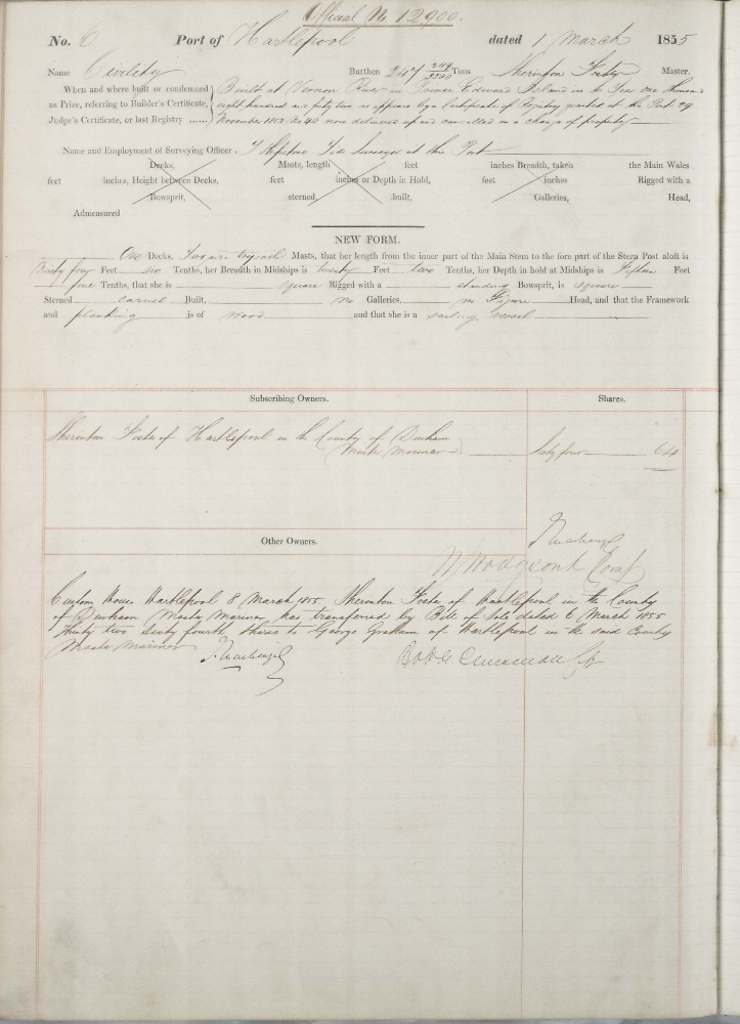 Official No 12,900.
No. 6 Port of Hartlepool dated 1 March 1855
Name Civility Burthen 247 Tons Master.
When and where built or condemned Built at Vernon River in Edward Island in the Year one thousand
as Prize, referring to Builder's Certificate, eight hundred and forty two as appears by a Certificate of Registry granted at this Port 29
Judge's Certificate, or last Registry ...... November 1852 No 40 now delivered up and cancelled on a change of property
Name and Employment of Surveying Officer. Tide Surveyor at this Port
Decks, Masts, length feet inches Breadth, taken the Main Wales
feet inches, Height between Decks, feet inches or Depth in Hold, feet inches Rigged with a
Bowsprit, sterned, built, Galleries, Head,
Admeasured
NEW FORM.
One Decks, Two Masts, that her length from the inner part of the Main Stem to the fore part of the Stern Post aloft is
Ninety four Feet six Tenths, her Breadth in Midships is twenty Feet two Tenths, her Depth in hold at Midships is fifteen Feet
Tenths, that she is square Rigged with a standing Bowsprit, is square
Sterned carvel Built, no Galleries, no Figure Head, and that the Framework
and planking is of wood and that she is a sailing vessel
Subscribing Owners. Shares.
Foster of Hartlepool in the County of Durham
Master Mariner Sixty four 64
Other Owners.
Custom House Hartlepool 8 March 1855. Foster of Hartlepool in the County
of Durham Master Mariner has transferred by Bill of Sale dated 6 March 1855
thirty two sixty fourth shares to George Graham of Hartlepool in the said County
Master Mariner